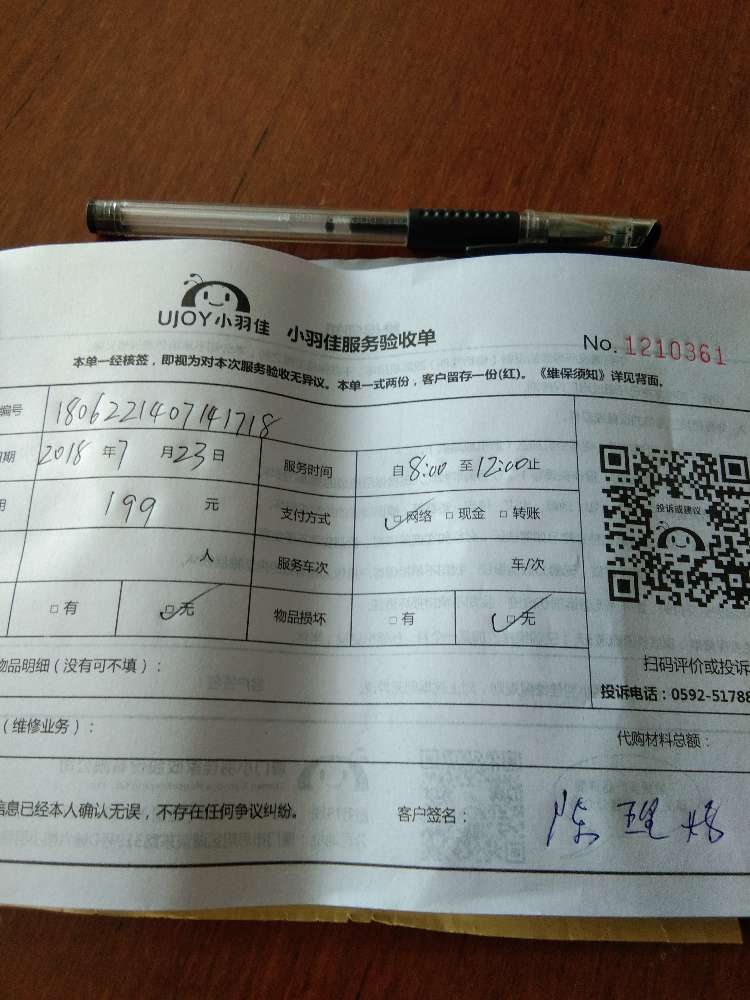 UJOY小羽佳 小羽佳服务验收单 No. 1210361
本单一经核签，即视为对本次服务验收无异议。本单一式两份，客户留存一份(红)。《维保须知》详见背面。
编号 1806221407141718
期 2018 年 7 月 23 日 服务时间 自 8:00 至 12:00 止
用 199 元 支付方式 □网络 □现金 □转账
投诉或建议
人 服务车次 车/次
□有 □无 物品损坏 □有 □无
物品明细（没有可不填）： 扫码评价或投诉
投诉电话：0592-51788
（维修业务）： 代购材料总额：
信息已经本人确认无误，不存在任何争议纠纷。 客户签名： 陈